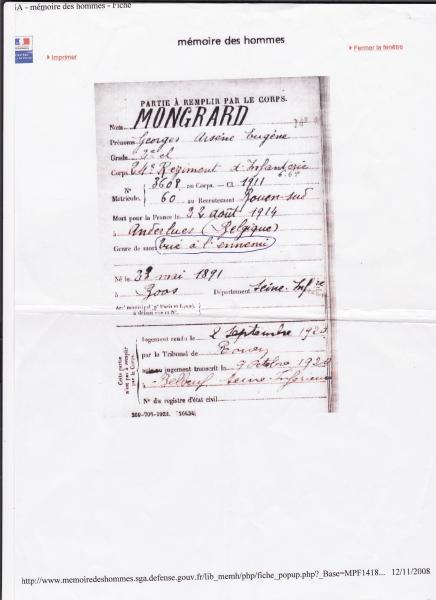 - mémoire des hommes - Fiche
mémoire des hommes
Imprimer
Fermer la fenêtre
PARTIE À REMPLIR PAR LE CORPS.
Nom MONGRARD
Prénoms Georges Arsène Eugène
Grade 2e cl
Corps 24e Régiment d'Infanterie
N° 3608 au Corps. — Cl 1911
Matricule. 60 au Recrutement Rouen-sud
Mort pour la France le 22 août 1914
à Anderlues (Belgique)
Genre de mort tué à l'ennemi
Né le mai 1891
à Boos Département Seine-Infre
Arr municipal (p Paris et Lyon),
à défaut rue et N°.
Cette partie
n'est pas à remplir
par le Corps.
Jugement rendu le 2 Septembre
par le Tribunal de Rouen
jugement transcrit le 9 Octobre
à Belbeuf Seine-Inférieure
N° du registre d'état civil
http://www.memoiredeshommes.sga.defense.gouv.fr/lib_memh/php/fiche_popup.php?_Base=MPF1418... 12/11/2008